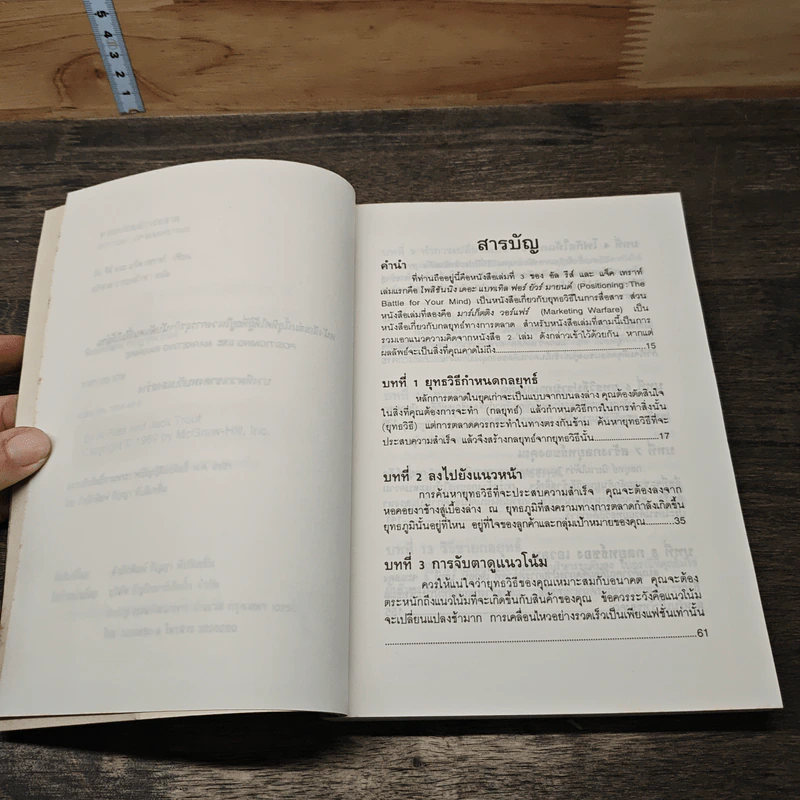 5 4 3 2 1
สารบัญ
คำนำ
ที่ท่านถืออยู่นี้คือหนังสือเล่มที่ 3 ของ อัล รีส์ และ แจ็ค เทราท์
เล่มแรกคือ โพสิชันนิง เดอะ แบทเทิล ฟอร์ ยัวร์ มายนด์ (Positioning : The
Battle for Your Mind) เป็นหนังสือเกี่ยวกับยุทธวิธีในการสื่อสาร ส่วน
หนังสือเล่มที่สองคือ มาร์เก็ตติง วอร์แฟร์ (Marketing Warfare) เป็น
หนังสือเกี่ยวกับกลยุทธ์ทางการตลาด สำหรับหนังสือเล่มที่สามนี้เป็นการ
รวมเอาแนวความคิดจากหนังสือ 2 เล่ม ดังกล่าวเข้าไว้ด้วยกัน หากแต่
ผลลัพธ์จะเป็นสิ่งที่คุณคาดไม่ถึง.....15
บทที่ 1 ยุทธวิธีกำหนดกลยุทธ์
หลักการตลาดในยุคเก่าจะเป็นแบบจากบนลงล่าง คุณต้องตัดสินใจ
ในสิ่งที่คุณต้องการจะทำ (กลยุทธ์) แล้วกำหนดวิธีการในการทำสิ่งนั้น
(ยุทธวิธี) แต่การตลาดควรกระทำในทางตรงกันข้าม ค้นหายุทธวิธีที่จะ
ประสบความสำเร็จ แล้วจึงสร้างกลยุทธ์จากยุทธวิธีนั้น.....17
บทที่ 2 ลงไปยังแนวหน้า
การค้นหายุทธวิธีที่จะประสบความสำเร็จ คุณจะต้องลงจาก
หอคอยงาช้างสู่เบื้องล่าง ณ ยุทธภูมิที่สงครามทางการตลาดกำลังเกิดขึ้น
ยุทธภูมินั้นอยู่ที่ไหน อยู่ที่ใจของลูกค้าและกลุ่มเป้าหมายของคุณ.....35
บทที่ 3 การจับตาดูแนวโน้ม
ควรให้แน่ใจว่ายุทธวิธีของคุณเหมาะสมกับอนาคต คุณจะต้อง
ตระหนักถึงแนวโน้มที่จะเกิดขึ้นกับสินค้าของคุณ ข้อควรระวังคือแนวโน้ม
จะเปลี่ยนแปลงช้ามาก การเคลื่อนไหวอย่างรวดเร็วเป็นเพียงแฟชั่นเท่านั้น
.....61